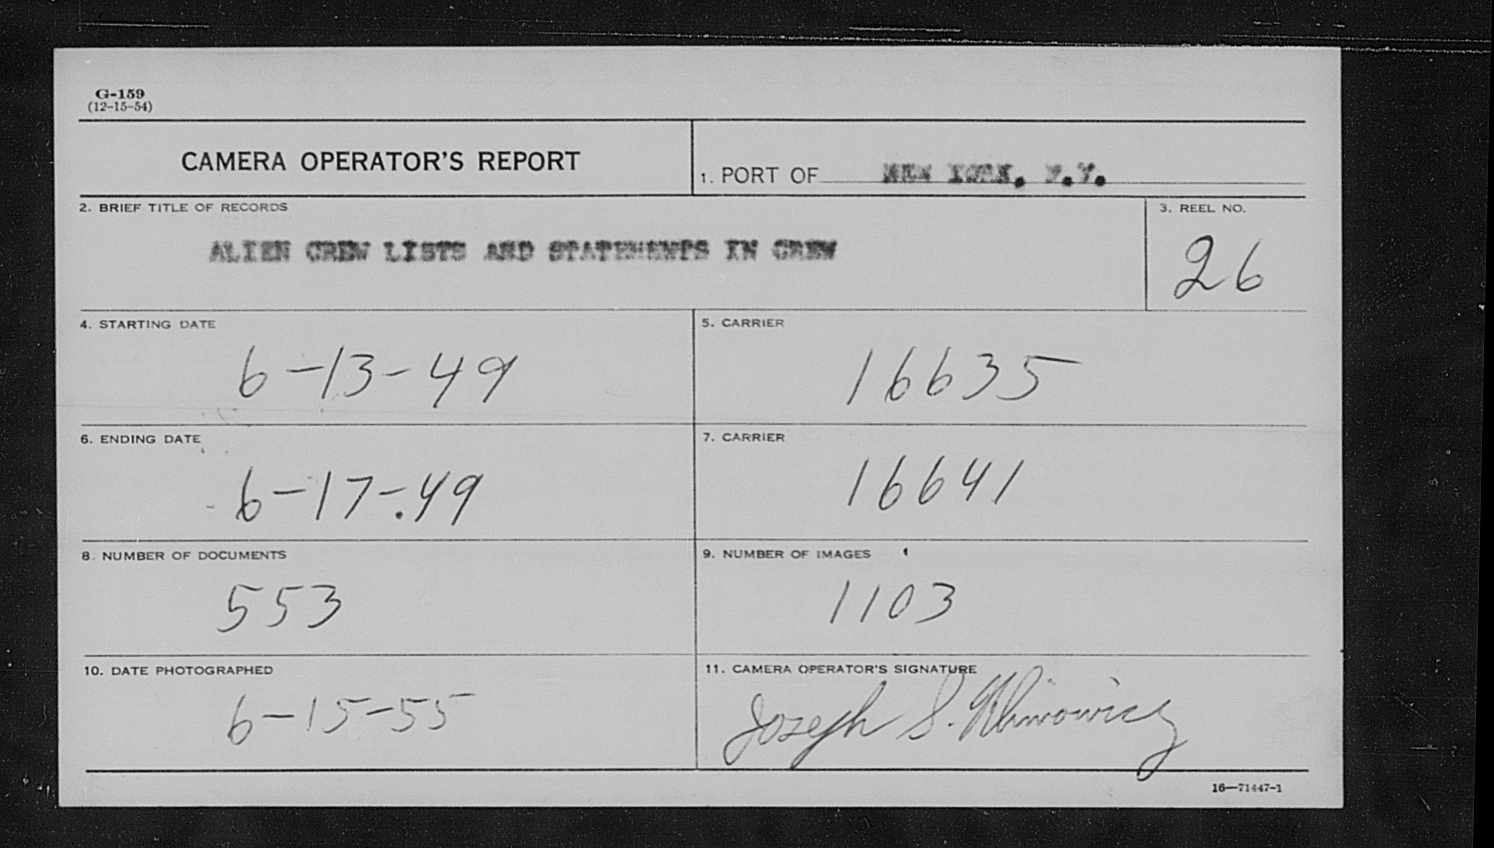 G-159
(12-15-54)
CAMERA OPERATOR'S REPORT
1. PORT OF NEW YORK, N.Y.
2. BRIEF TITLE OF RECORDS
ALIEN CREW LISTS AND STATEMENTS IN CREW
3. REEL NO.
26
4. STARTING DATE
6-13-49
5. CARRIER
16635
6. ENDING DATE
6-17-49
7. CARRIER
16641
8. NUMBER OF DOCUMENTS
553
9. NUMBER OF IMAGES
1103
10. DATE PHOTOGRAPHED
6-15-55
11. CAMERA OPERATOR'S SIGNATURE
Joseph S.
16—71447-1